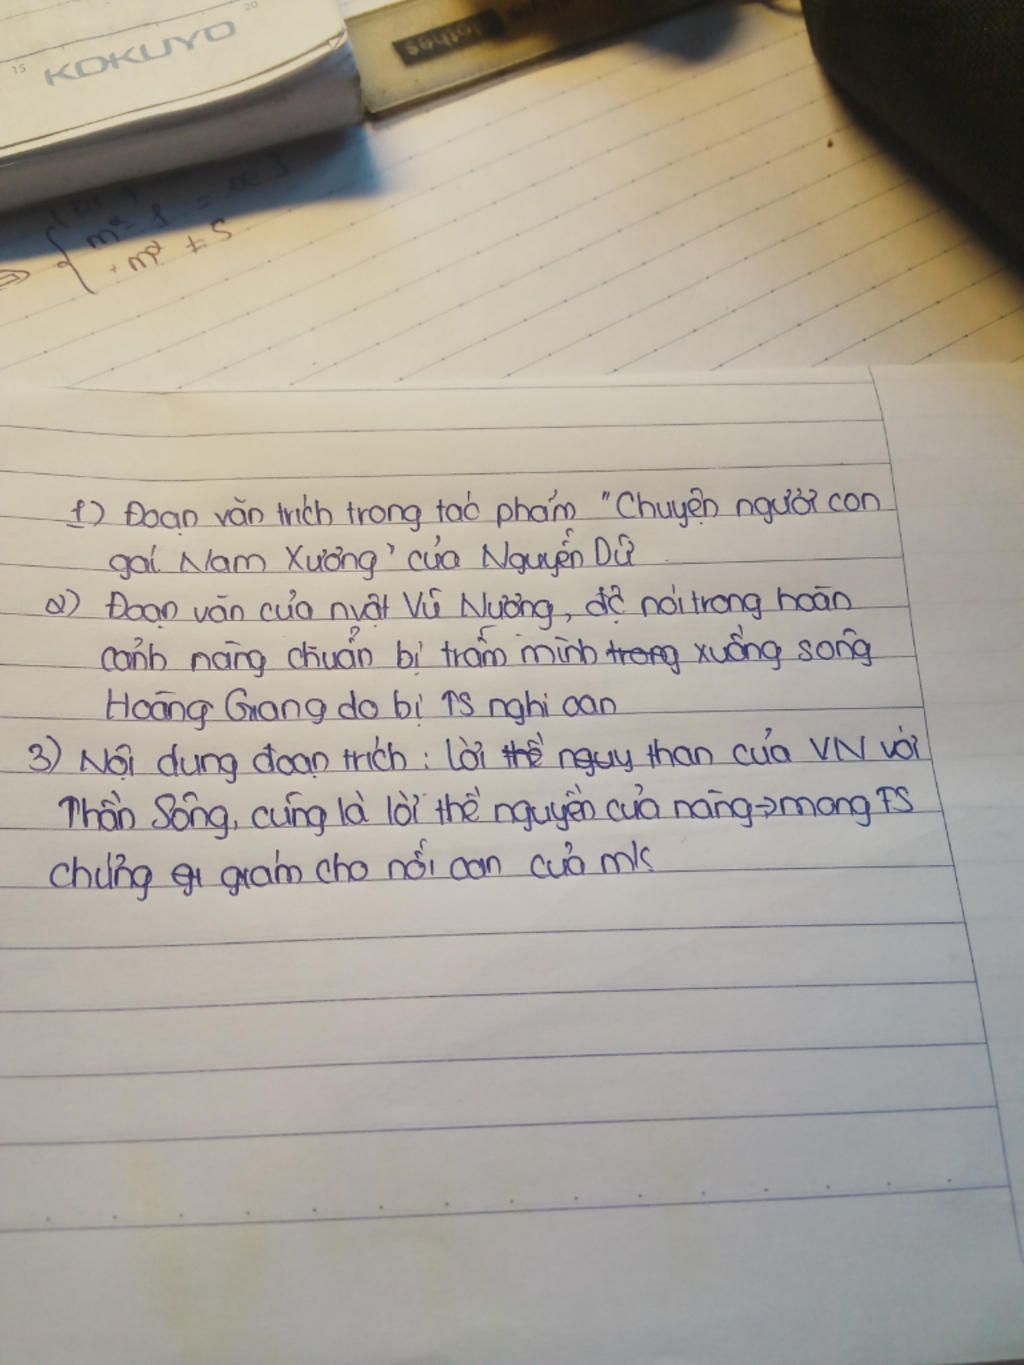 15
20
KOKUYO
1) Đoạn văn trích trong tác phẩm "Chuyện người con
gái Nam Xương" của Nguyễn Dữ
2) Đoạn văn của nvật Vũ Nương, đc nói trong hoàn
cảnh nàng chuẩn bị trẫm mình trong xuống sông
Hoàng Giang do bị TS nghi oan
3) Nội dung đoạn trích: lời thề nguy than của VN với
Thần Sông, cũng là lời thề nguyền của nàng → mong TS
chứng gi giám cho nỗi oan của mk